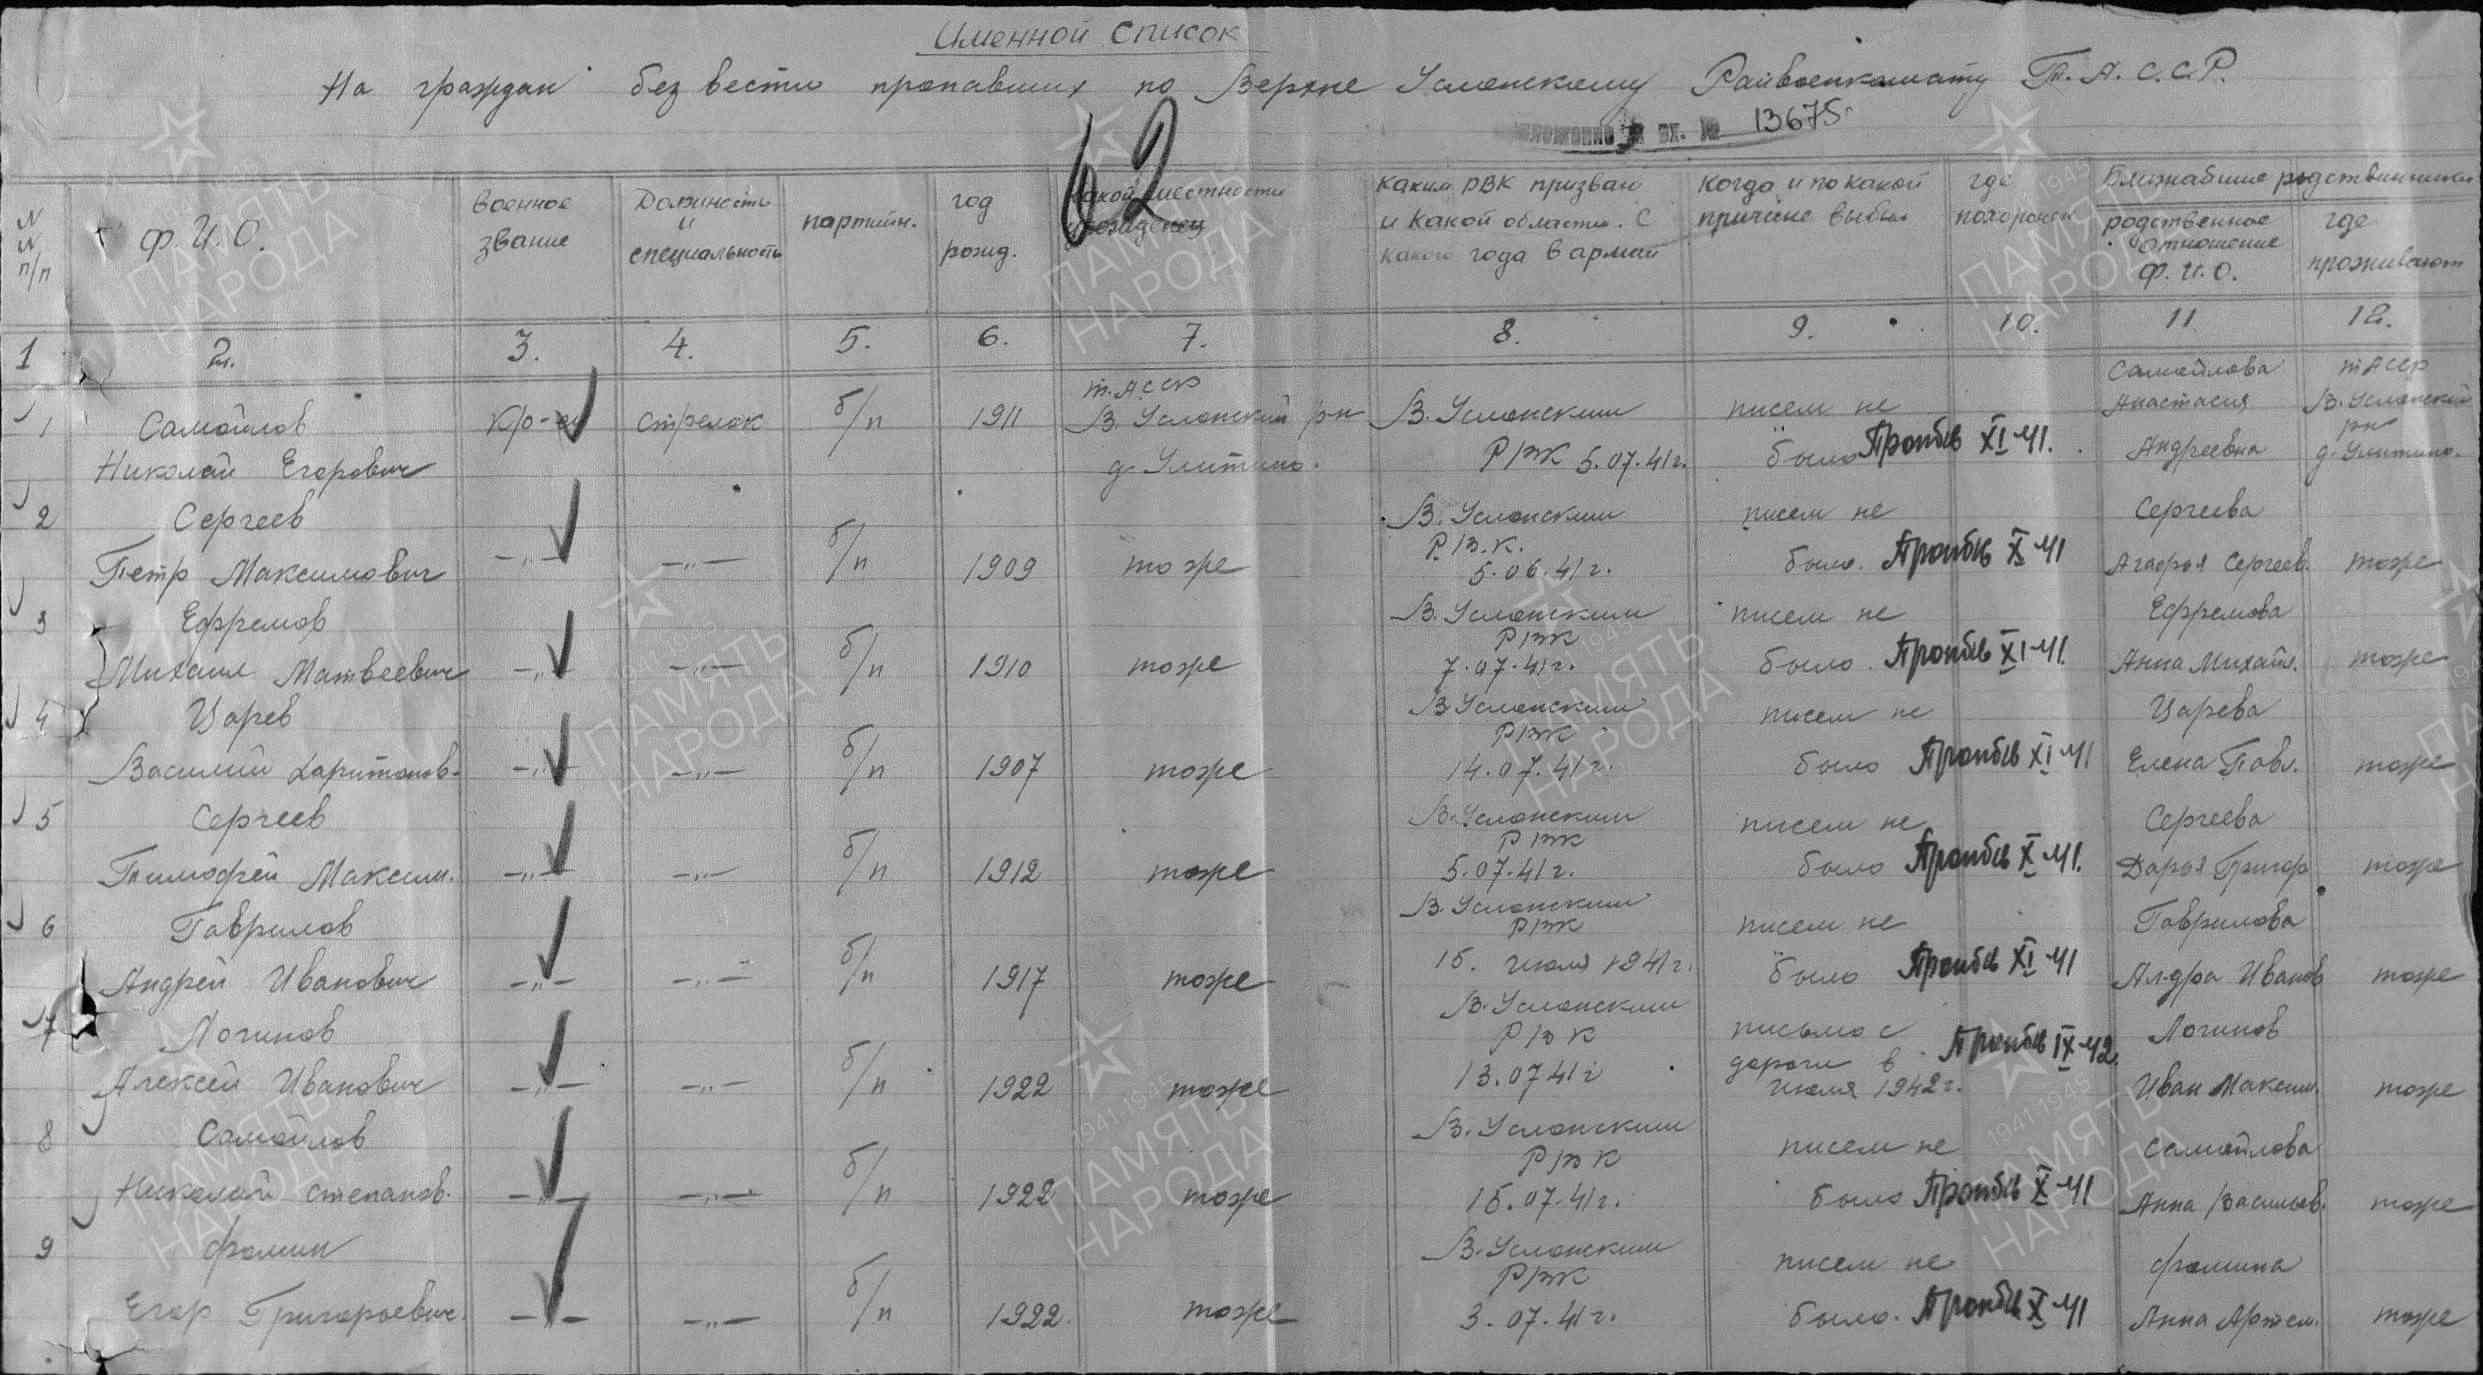 Именной список
На граждан без вести пропавших по Верхне Услонскому Райвоенкомату Т.А.С.С.Р.
62
вх. № 13675
N N п/п
Ф.И.О.
военное звание
Должность и специальность
партийн.
год рожд.
какой местности
каким РВК призван и какой области. С какого года в армии
когда и по какой причине выбыл
где похоронен
Ближайшие родственники
родственное отношение Ф.И.О.
где проживают
1 2. 3. 4. 5. 6. 7. 8. 9. 10. 11 12.
1 Самойлов Николай Егорович кр-ец стрелок б/п 1911 т.АССР В. Услонский р-н д. Улитино. В. Услонским РВК 5.07.41г. писем не было Пропбв XI-41. Самойлова Анастасия Андреевна тАССР В. Услонский р-н д. Улитино.
2 Сергеев Петр Максимович -„- -„- б/п 1909 тоже В. Услонским Р.В.К. 5.06.41г. писем не было. Пропбв X-41 Сергеева Агафья Сергеев. тоже
3 Ефремов Михаил Матвеевич -„- -„- б/п 1910 тоже В. Услонским РВК 7.07.41г. писем не было. Пропбв XI-41. Ефремова Анна Михайл. тоже
4 Царев Василий Харитонов- -„- -„- б/п 1907 тоже В Услонским РВК 14.07.41г. писем не было Пропбв XI-41 Царева Елена Павл. тоже
5 Сергеев Тимофей Максим. -„- -„- б/п 1912 тоже В. Услонским РВК 5.07.41г. писем не было Пропбв X-41. Сергеева Дарья Григор тоже
6 Гаврилов Андрей Иванович -„- -„- б/п 1917 тоже В. Услонским РВК 15. июля 1941г. писем не было Пропбв XI-41 Гаврилова Ал-дра Иванов тоже
7 Логинов Алексей Иванович -„- -„- б/п 1922 тоже В. Услонским РВК 13.07 41г письмо с дороги в июля 1942г. Пропбв IX-42. Логинов Иван Максим. тоже
8 Самойлов Николай Степанов. -„- -„- б/п 1922 тоже В. Услонским РВК 15.07.41г. писем не было Пропбв X-41 Самойлова Анна Васильев. тоже
9 Фомин Егор Григорьевич. -„- -„- б/п 1922. тоже В. Услонским РВК 3.07.41г. писем не было. Пропбв X-41 Фомина Анна Артем. тоже
ПАМЯТЬ НАРОДА
1941-1945